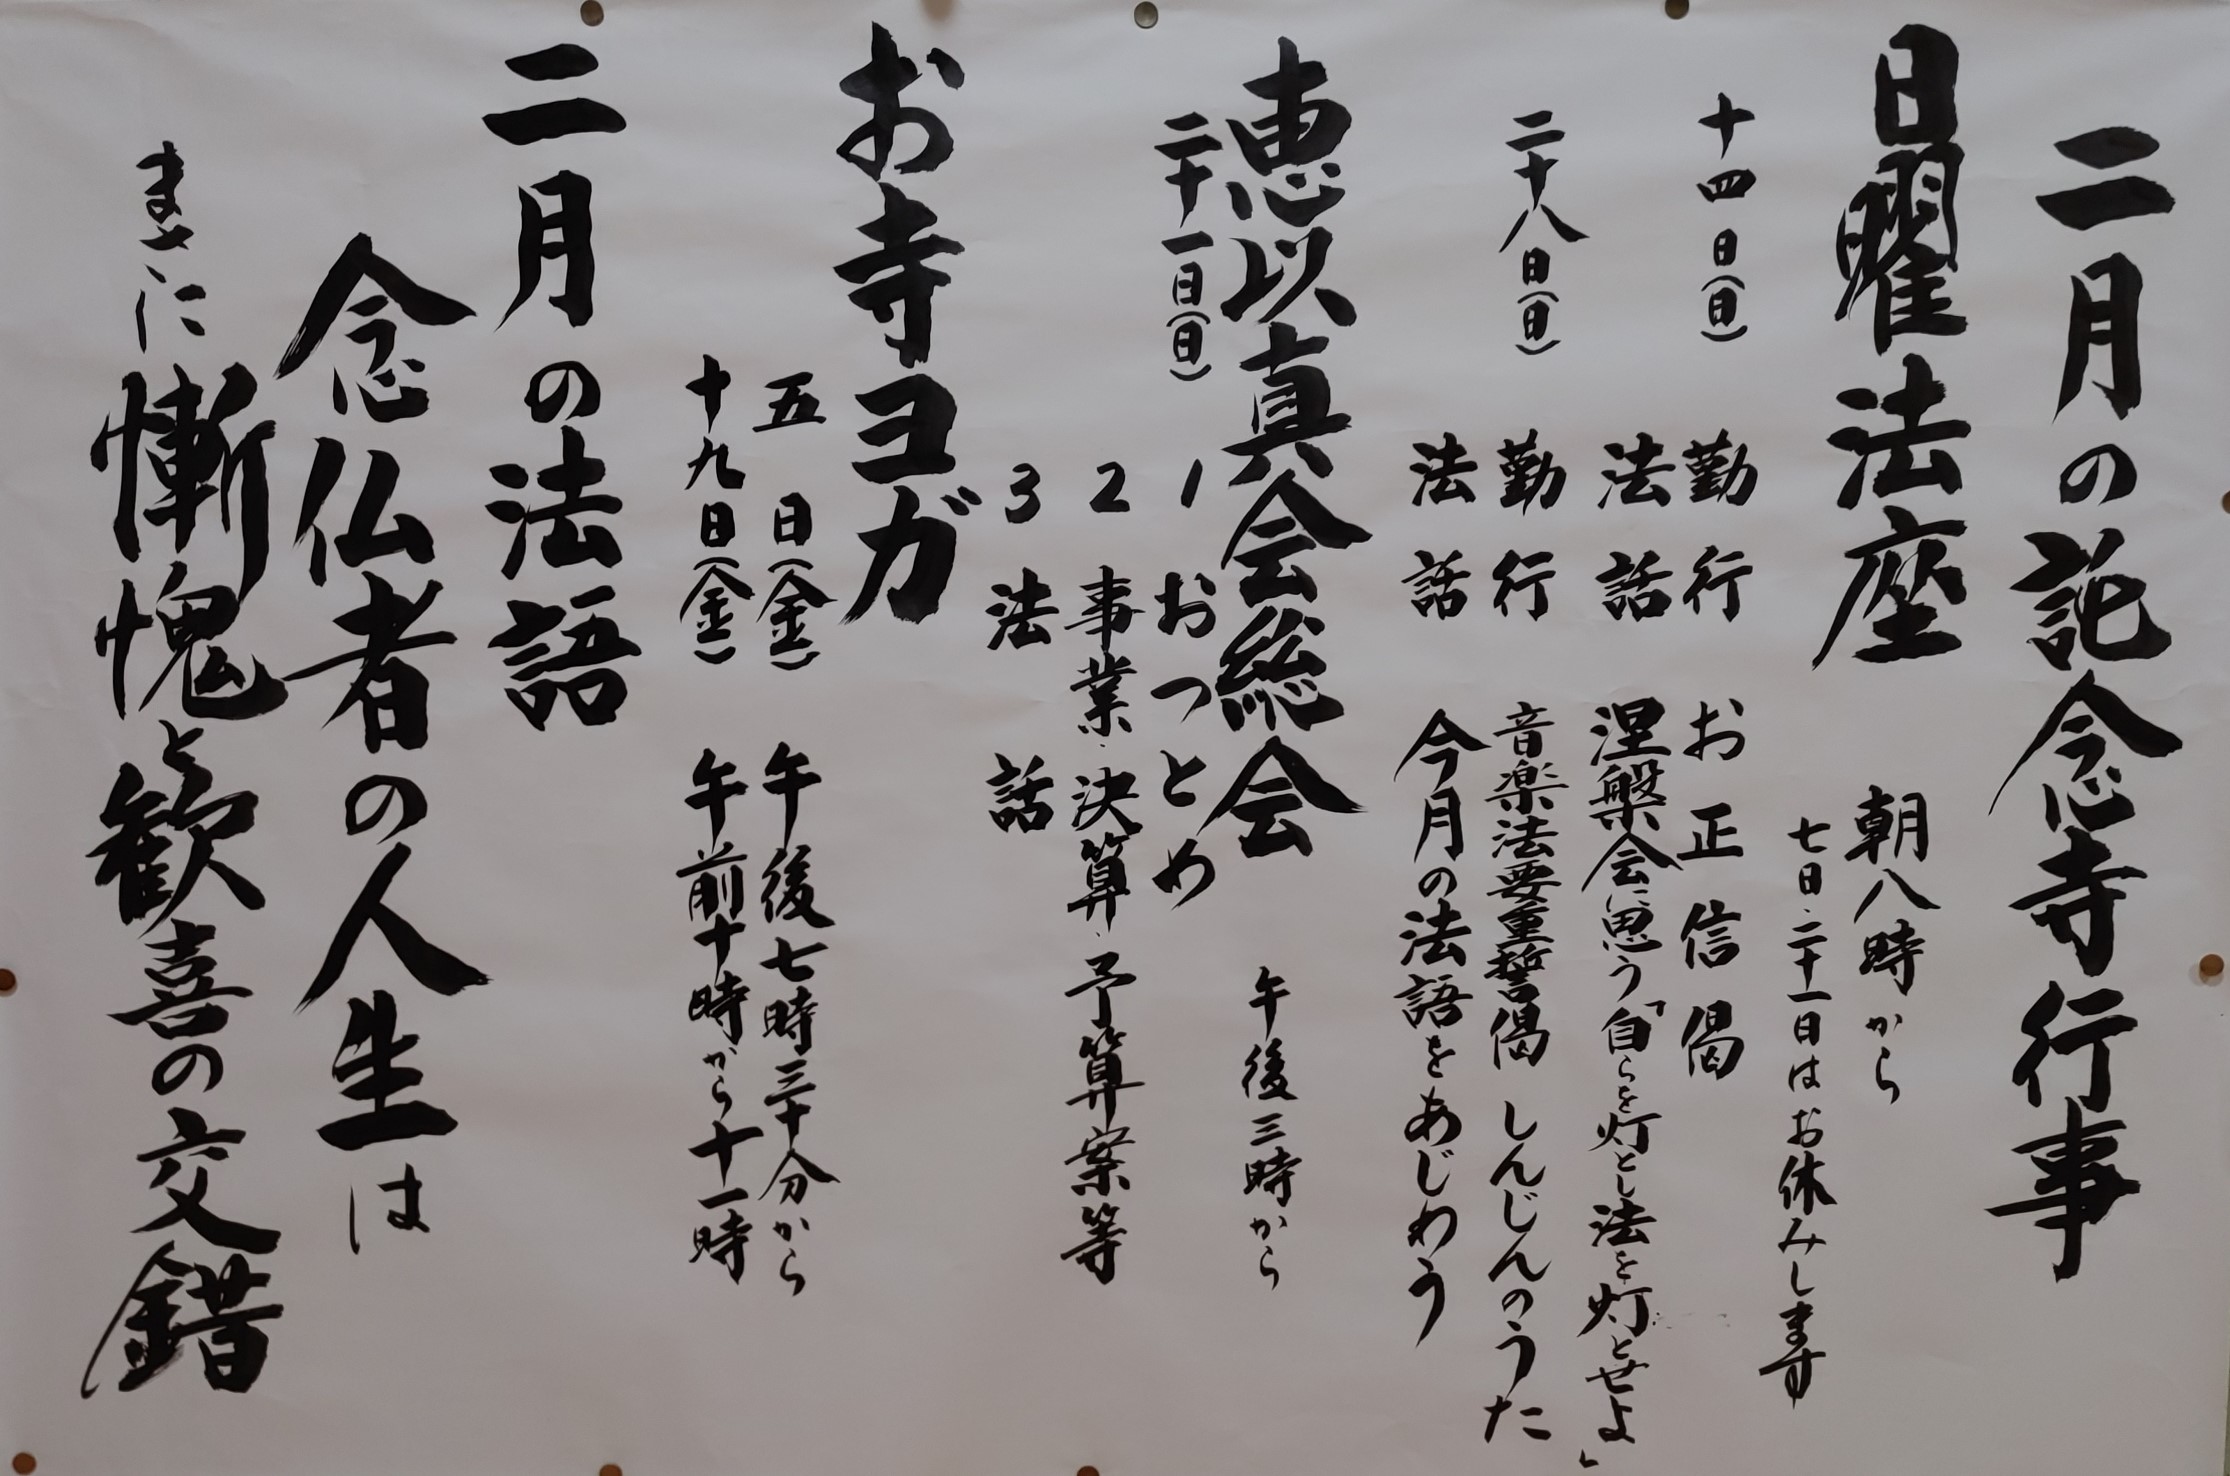 二月の託念寺行事
日曜法座
朝八時から
七日・二十一日はお休みします
十四日(日)
勤行 お正信偈
法話 涅槃会に思う「自らを灯とし法を灯とせよ」
二十八日(日)
勤行 音楽法要重誓偈 しんじんのうた
法話 今月の法語をあじわう
恵以真会総会 午後三時から
二十一日(日)
1 おつとめ
2 事業・決算・予算案等
3 法話
お寺ヨガ
五日(金) 午後七時三十分から
十九日(金) 午前十時から十一時
二月の法語
念仏者の人生は
まさに慚愧と歓喜の交錯